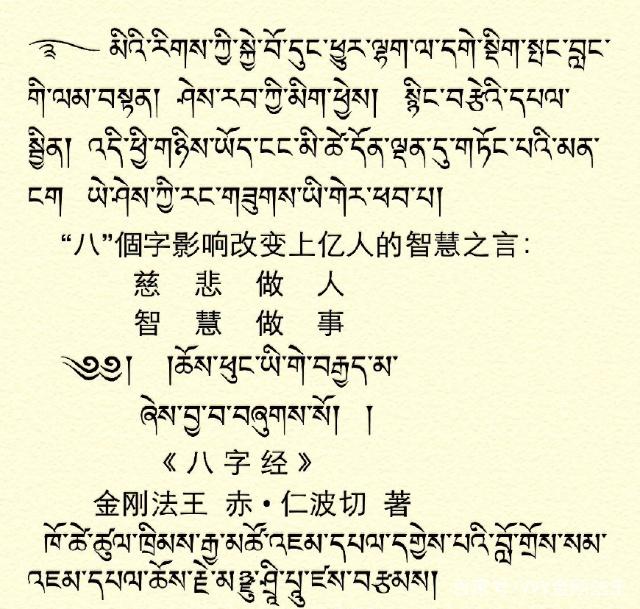 ༄ མིའི་རིགས་ཀྱི་སྐྱེ་བོ་དུང་ཕྱུར་ལྷག་ལ་དགེ་སྡིག་སྤང་བླང་
གི་ལམ་བསྟན། ཤེས་རབ་ཀྱི་མིག་ཕྱེས། སྙིང་བརྩེའི་དཔལ་
སྦྱིན། འདི་ཕྱི་གཉིས་ཡོད་ངང་མི་ཚེ་དོན་ལྡན་དུ་གཏོང་པའི་མན་
ངག ཡེ་ཤེས་ཀྱི་རང་གཟུགས་ཡི་གེར་ཕབ་པ།
“八”個字影响改变上亿人的智慧之言：
慈 悲 做 人
智 慧 做 事
༄༅། །ཆོས་ཕུང་ཡི་གེ་བརྒྱད་མ་
ཞེས་བྱ་བ་བཞུགས་སོ། །
《八字经》
金刚法王 赤·仁波切 著
ཁོ་ཚེ་ཚུལ་ཁྲིམས་རྒྱ་མཚོ་འཇམ་དཔལ་དགྱེས་པའི་བློ་གྲོས་སམ་
འཇམ་དཔལ་ཆོས་རྗེ་མ་ཤྲཱི་པཱུ་ཛས་བརྩམས།